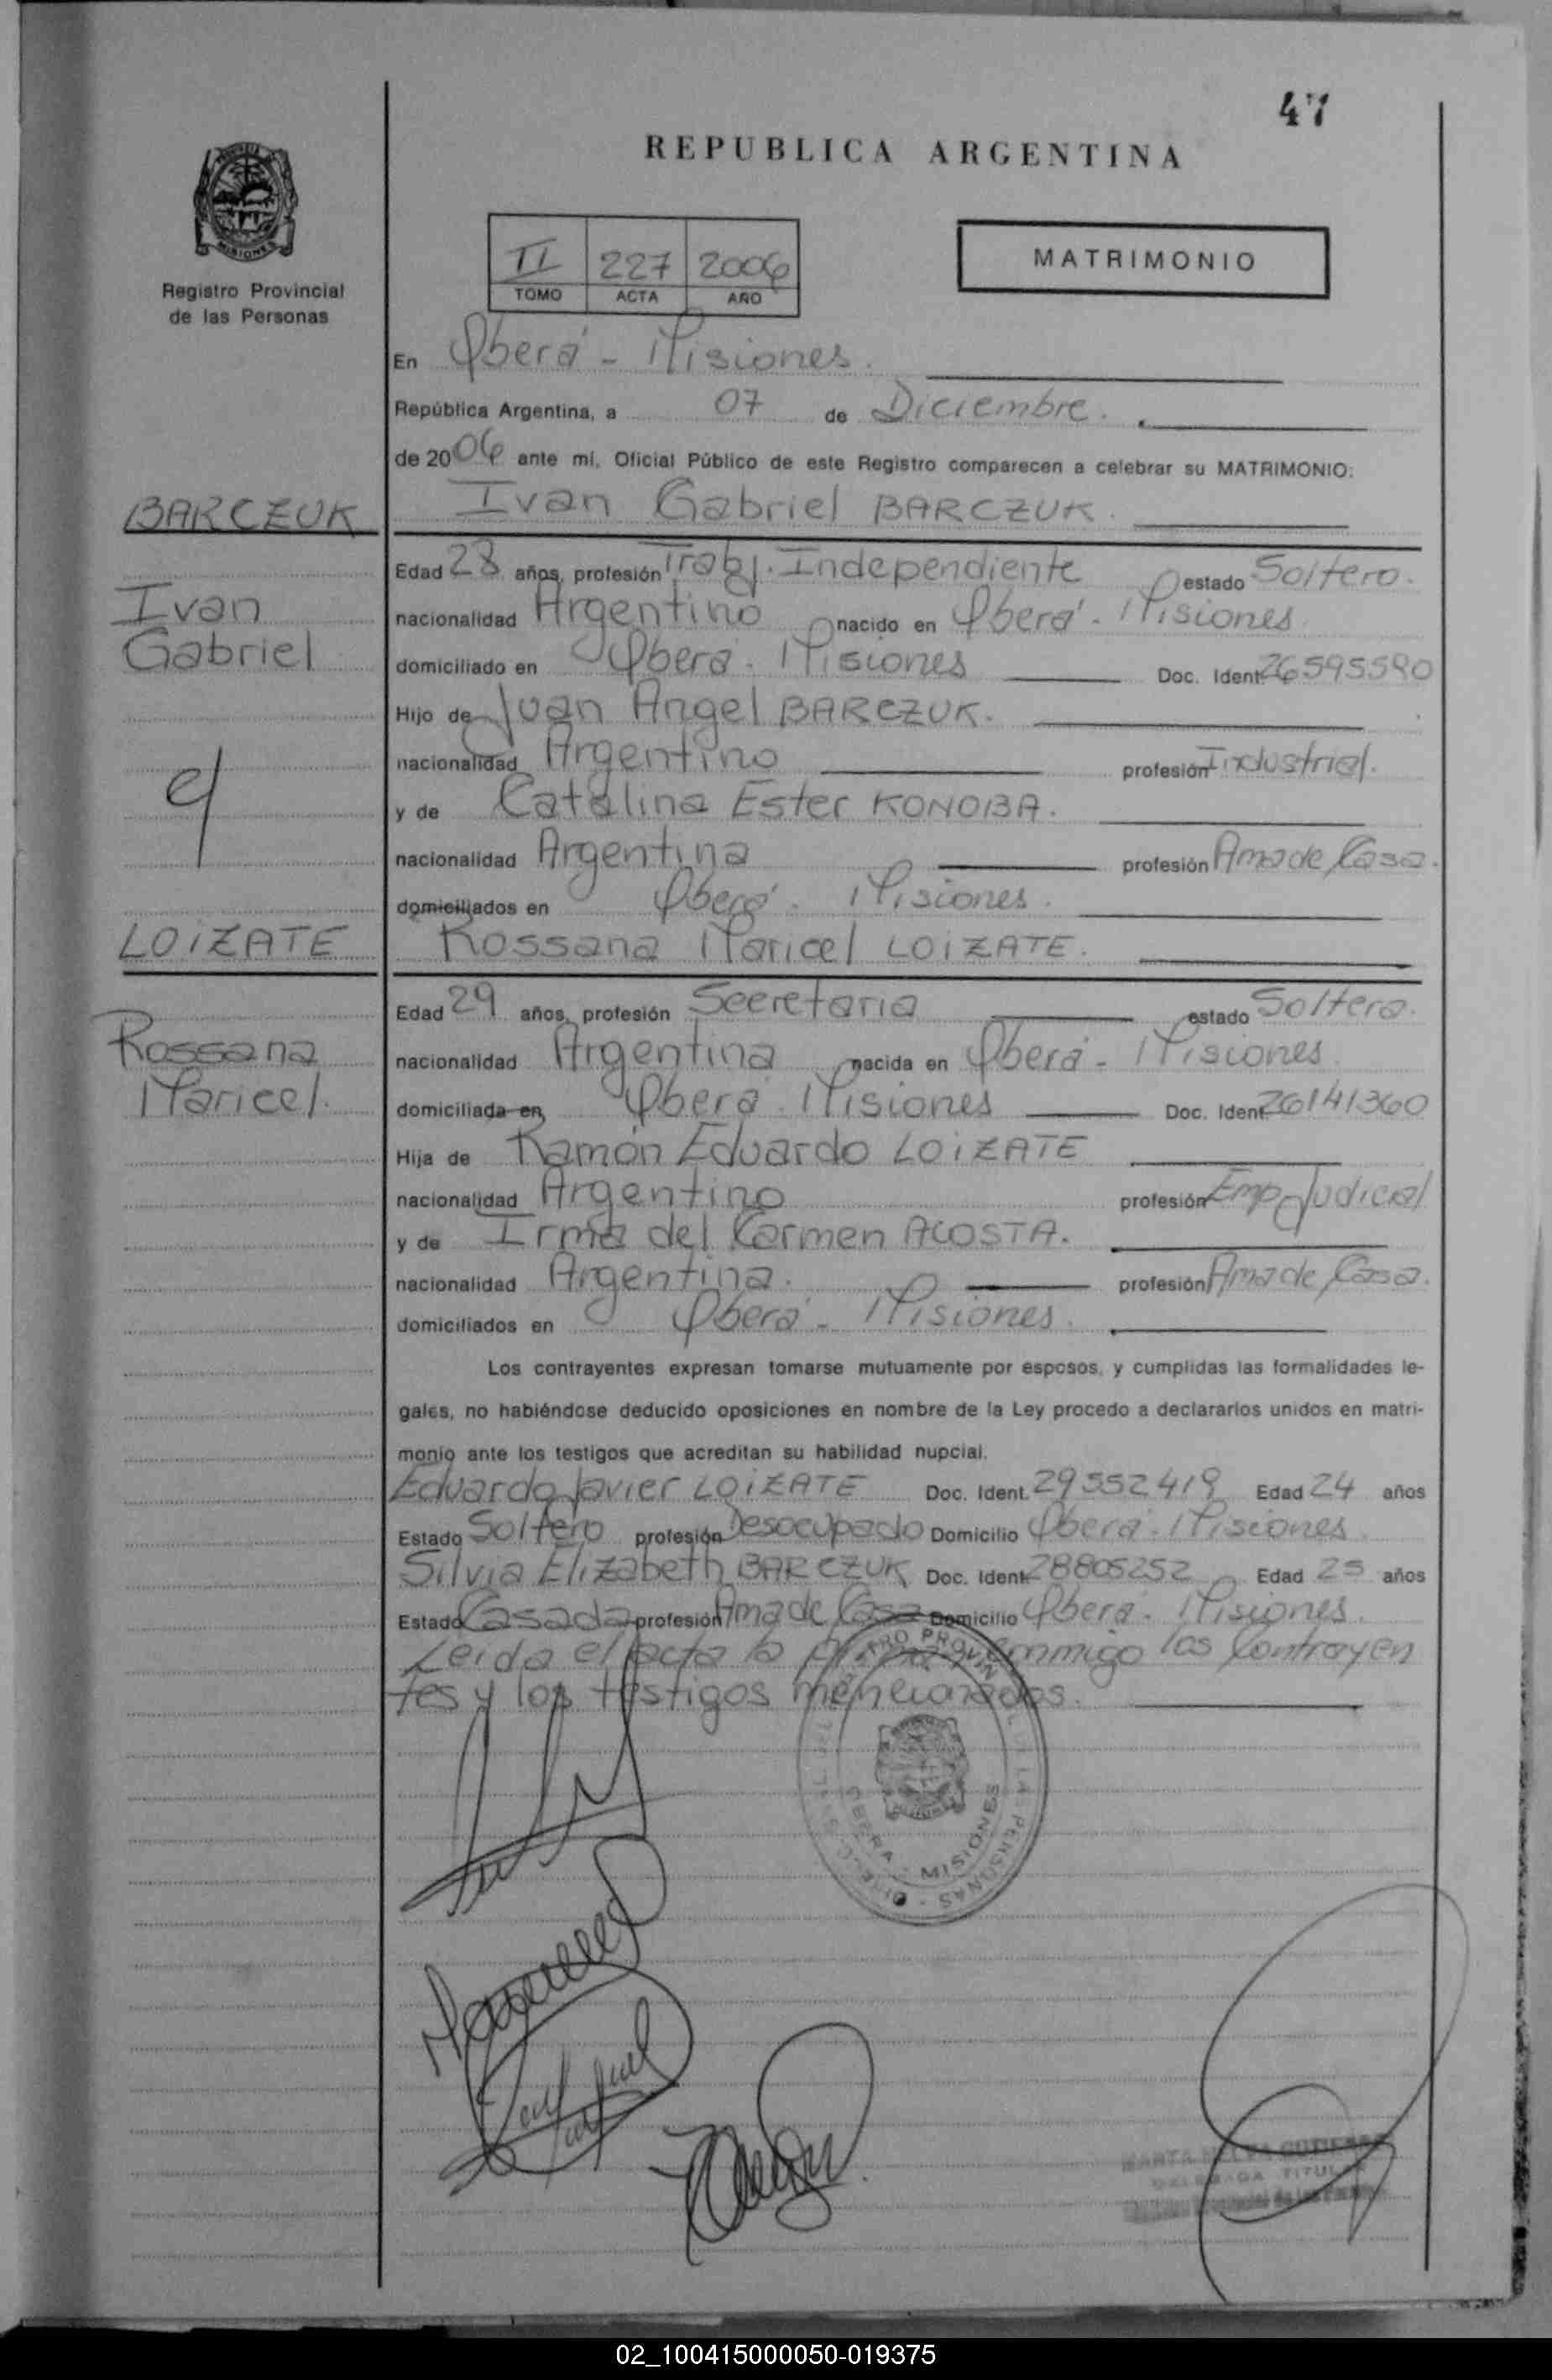 47
REPUBLICA ARGENTINA
MISIONES
Registro Provincial
de las Personas
II 227 2006
TOMO ACTA AÑO
MATRIMONIO
En Oberá - Misiones.
República Argentina, a 07 de Diciembre.
de 2006 ante mí, Oficial Público de este Registro comparecen a celebrar su MATRIMONIO:
BARCZUK
Ivan Gabriel BARCZUK.
Edad 28 años, profesión Trabj. Independiente estado Soltero.
Ivan
nacionalidad Argentino nacido en Oberá - Misiones
Gabriel
domiciliado en Oberá - Misiones Doc. Ident. 26595590
Hijo de Juan Angel BARCZUK.
nacionalidad Argentino profesión Industrial.
y
y de Catalina Ester KONOBA.
nacionalidad Argentina profesión Ama de Casa.
domiciliados en Oberá - Misiones.
LOIZATE
Rossana Maricel LOIZATE.
Edad 29 años, profesión Secretaria estado Soltera.
Rossana
nacionalidad Argentina nacida en Oberá - Misiones
Maricel.
domiciliada en Oberá - Misiones Doc. Ident. 26141360
Hija de Ramón Eduardo LOIZATE
nacionalidad Argentino profesión Emp. Judicial
y de Irma del Carmen ACOSTA.
nacionalidad Argentina. profesión Ama de Casa.
domiciliados en Oberá - Misiones.
Los contrayentes expresan tomarse mutuamente por esposos, y cumplidas las formalidades le-
gales, no habiéndose deducido oposiciones en nombre de la Ley procedo a declararlos unidos en matri-
monio ante los testigos que acreditan su habilidad nupcial.
Eduardo Javier LOIZATE Doc. Ident. 29552419 Edad 24 años
Estado Soltero profesión Desocupado Domicilio Oberá - Misiones
Silvia Elizabeth BARCZUK Doc. Ident. 28805252 Edad 25 años
Estado Casada profesión Ama de Casa Domicilio Oberá - Misiones.
Leida el acta la firman conmigo los Contrayen
tes y los testigos mencionados.
OBERA - MISIONES
02_100415000050-019375